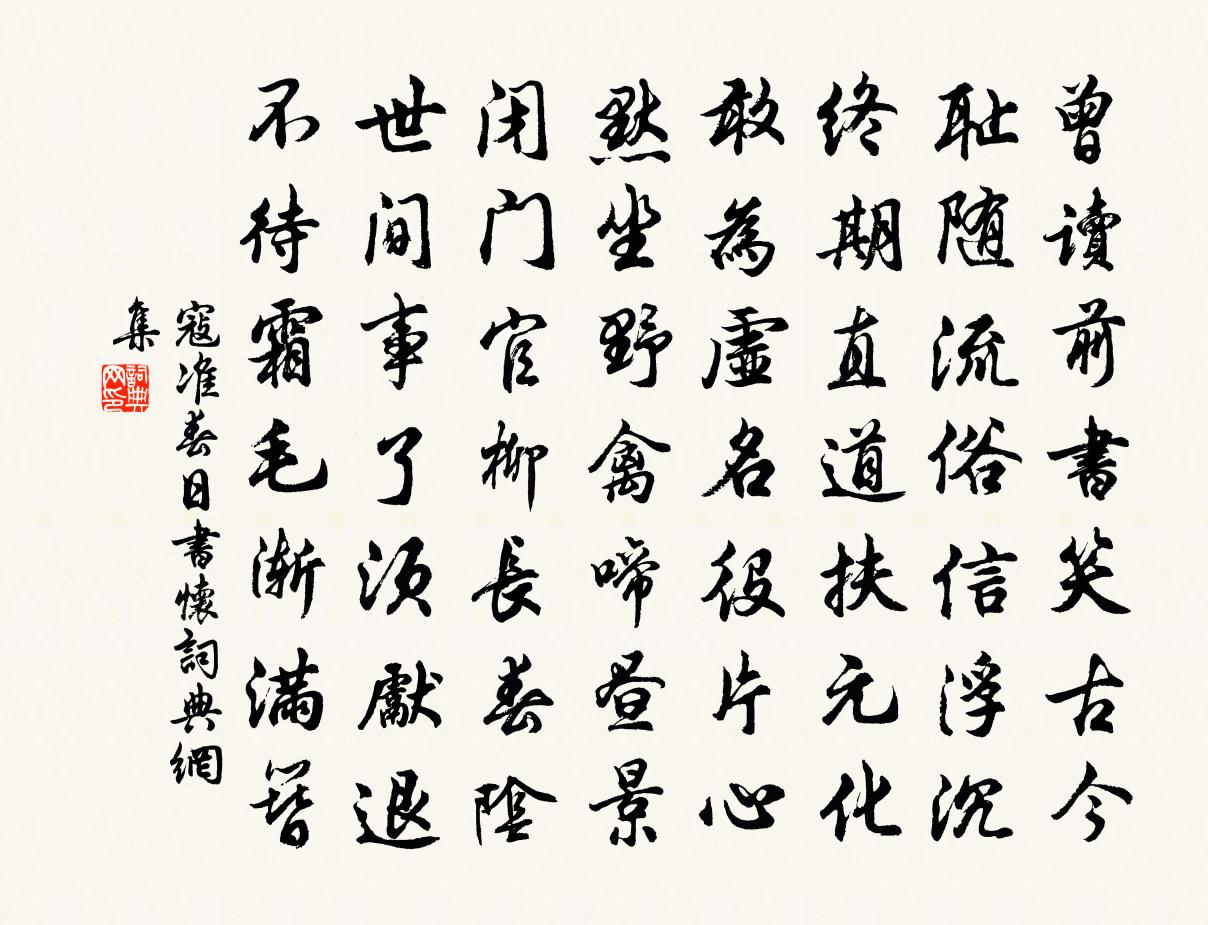 曾讀前書笑古今
耻随流俗信浮沉
終期直道扶元化
敢為虛名役片心
默坐野禽啼晝景
闭门官柳長春陰
世间事了須獻退
不待霜毛漸滿簪
寇准春日書懷詞典網
集
詞典
网印